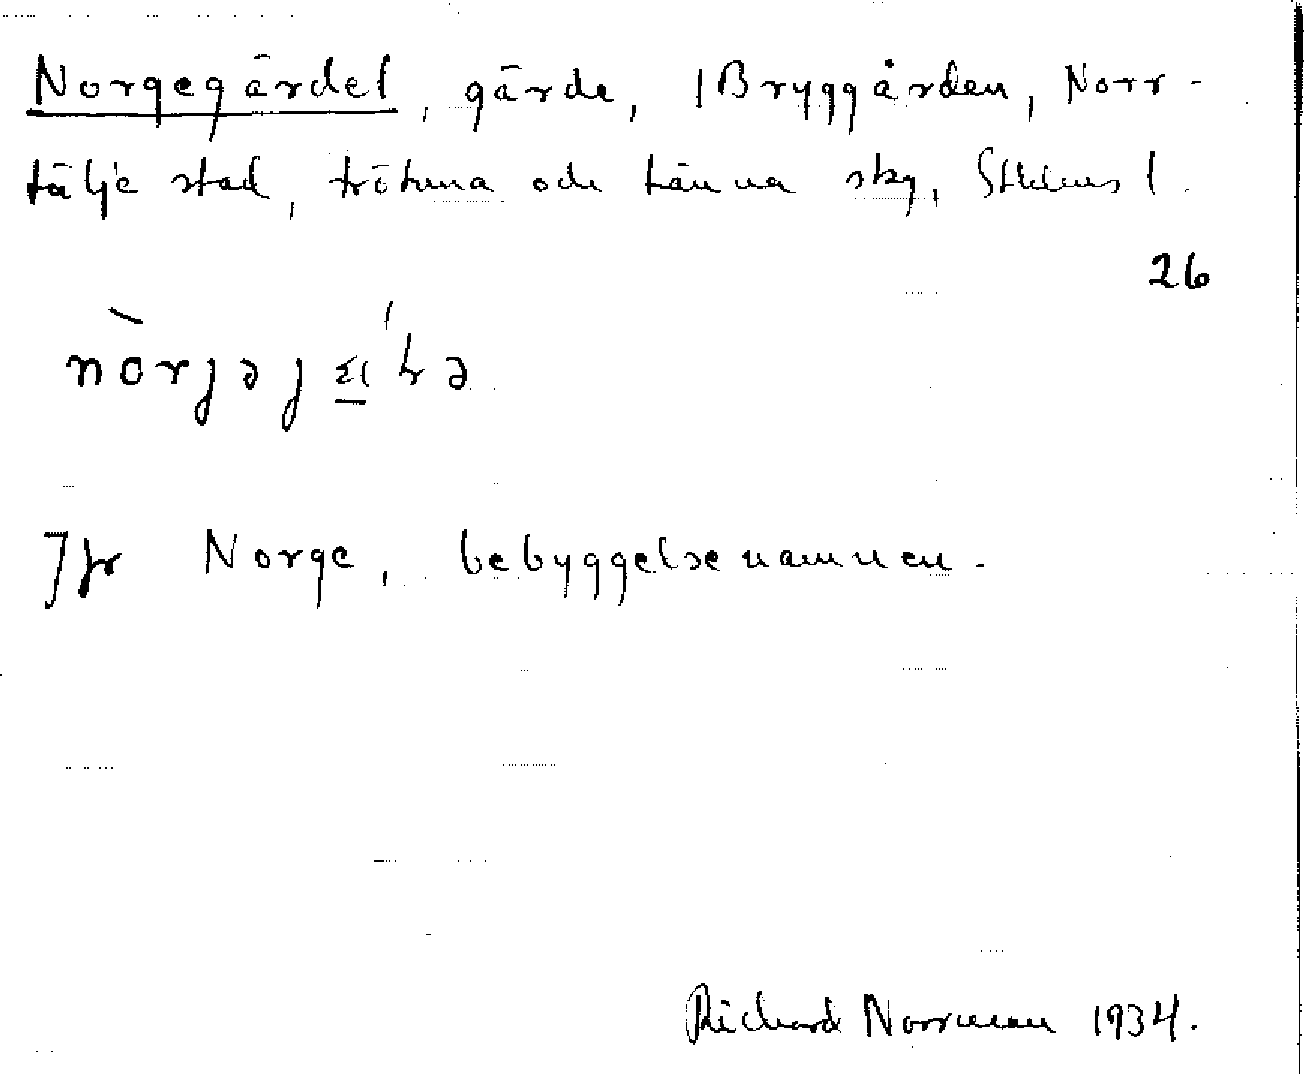 Norgegärdet, gärde, /Bryggården, Norr-
tälje stad, Frötuna och Länna skg, Sthlms l.
26
Jfr Norge, bebyggelsenamnen.
Richard Norrman 1934.